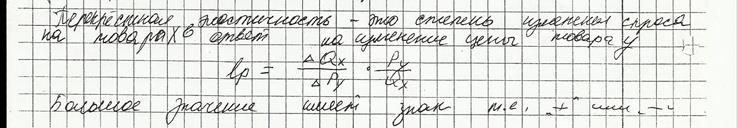 Перекрёстная эластичность – это степень изменения спроса
на товара X в ответ на изменение цены товара y
lp = ΔQx / ΔPy · Py / Qx
Большое значение имеет знак т.е. „+" или „–"